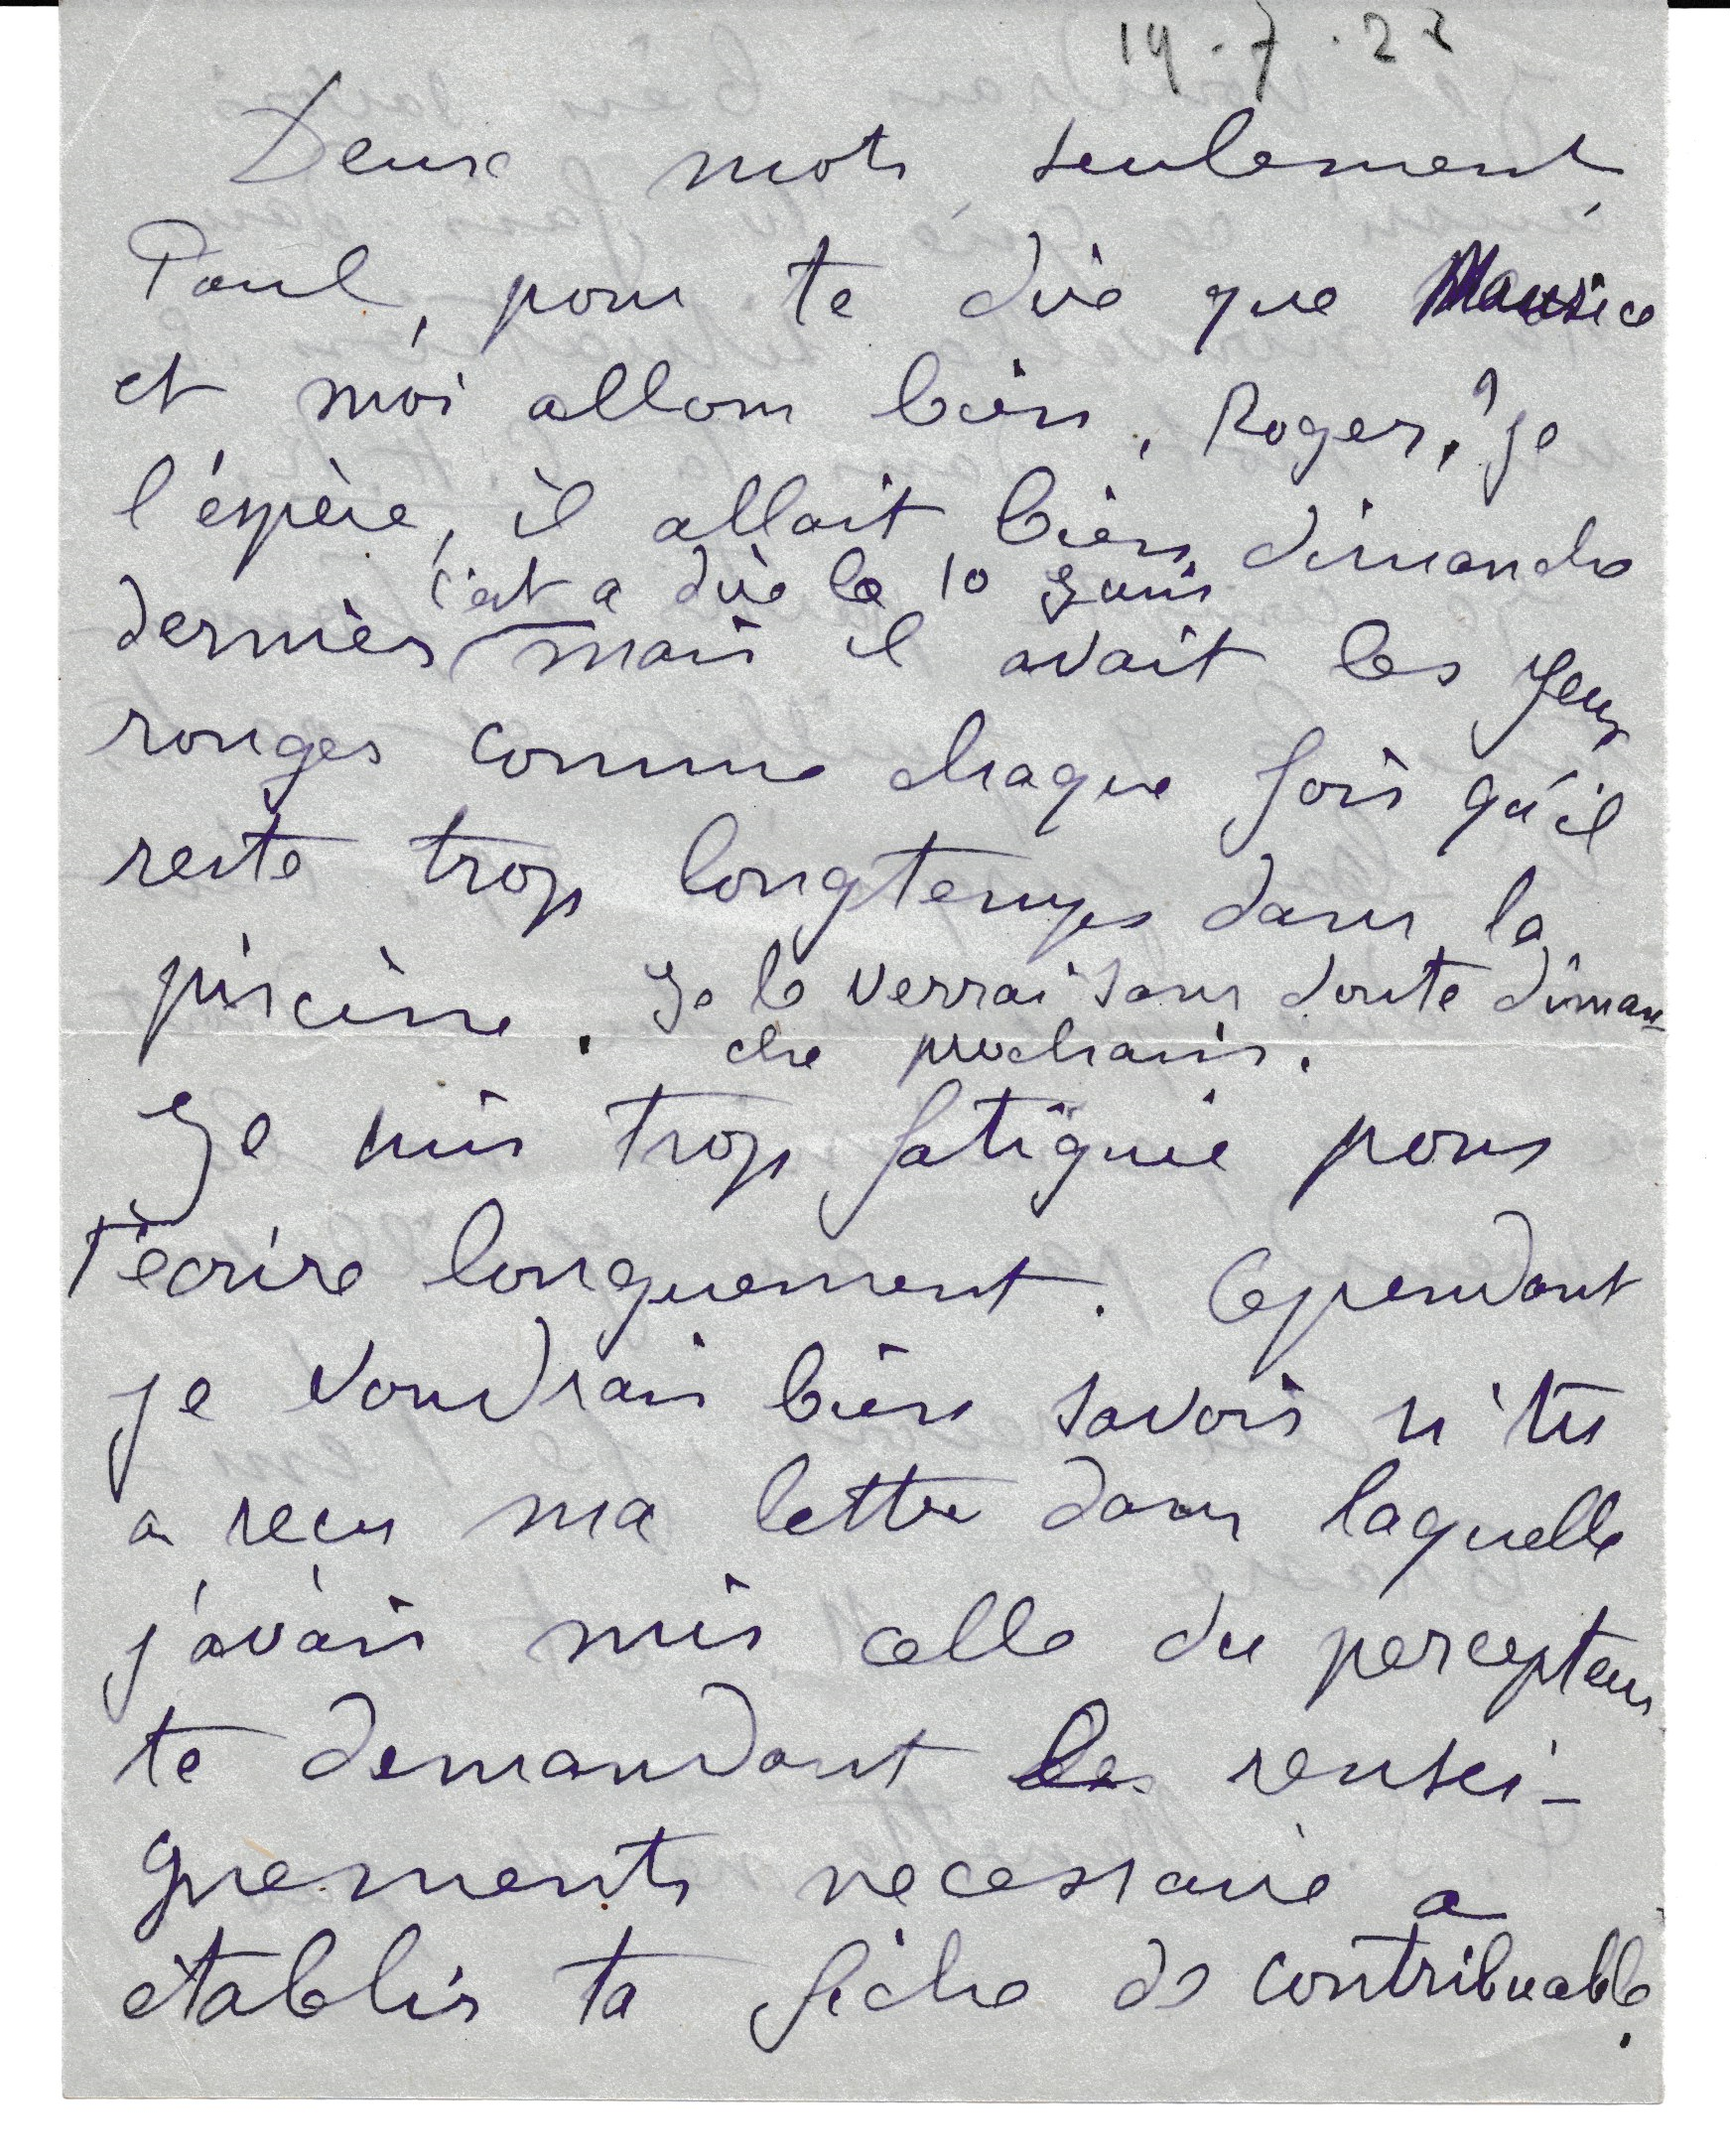 19.7.22
Deux mots seulement,
Paul, pour te dire que Maurice
et moi allons bien. Roger, je
l'espère, il allait bien dimanche
c'est a dire le 10
dernier mais il avait les yeux
rouges comme chaque fois qu'il
reste trop longtemps dans la
piscine. Je le verrai sans doute diman-
che prochain.
Je suis trop fatiguée pour
t'écrire longuement. Cependant
je voudrais bien savoir si tu
as reçu ma lettre dans laquelle
j'avais mis celle du percepteur
te demandant les rensei-
gnements necessaire a
établir ta fiche de contribuable.